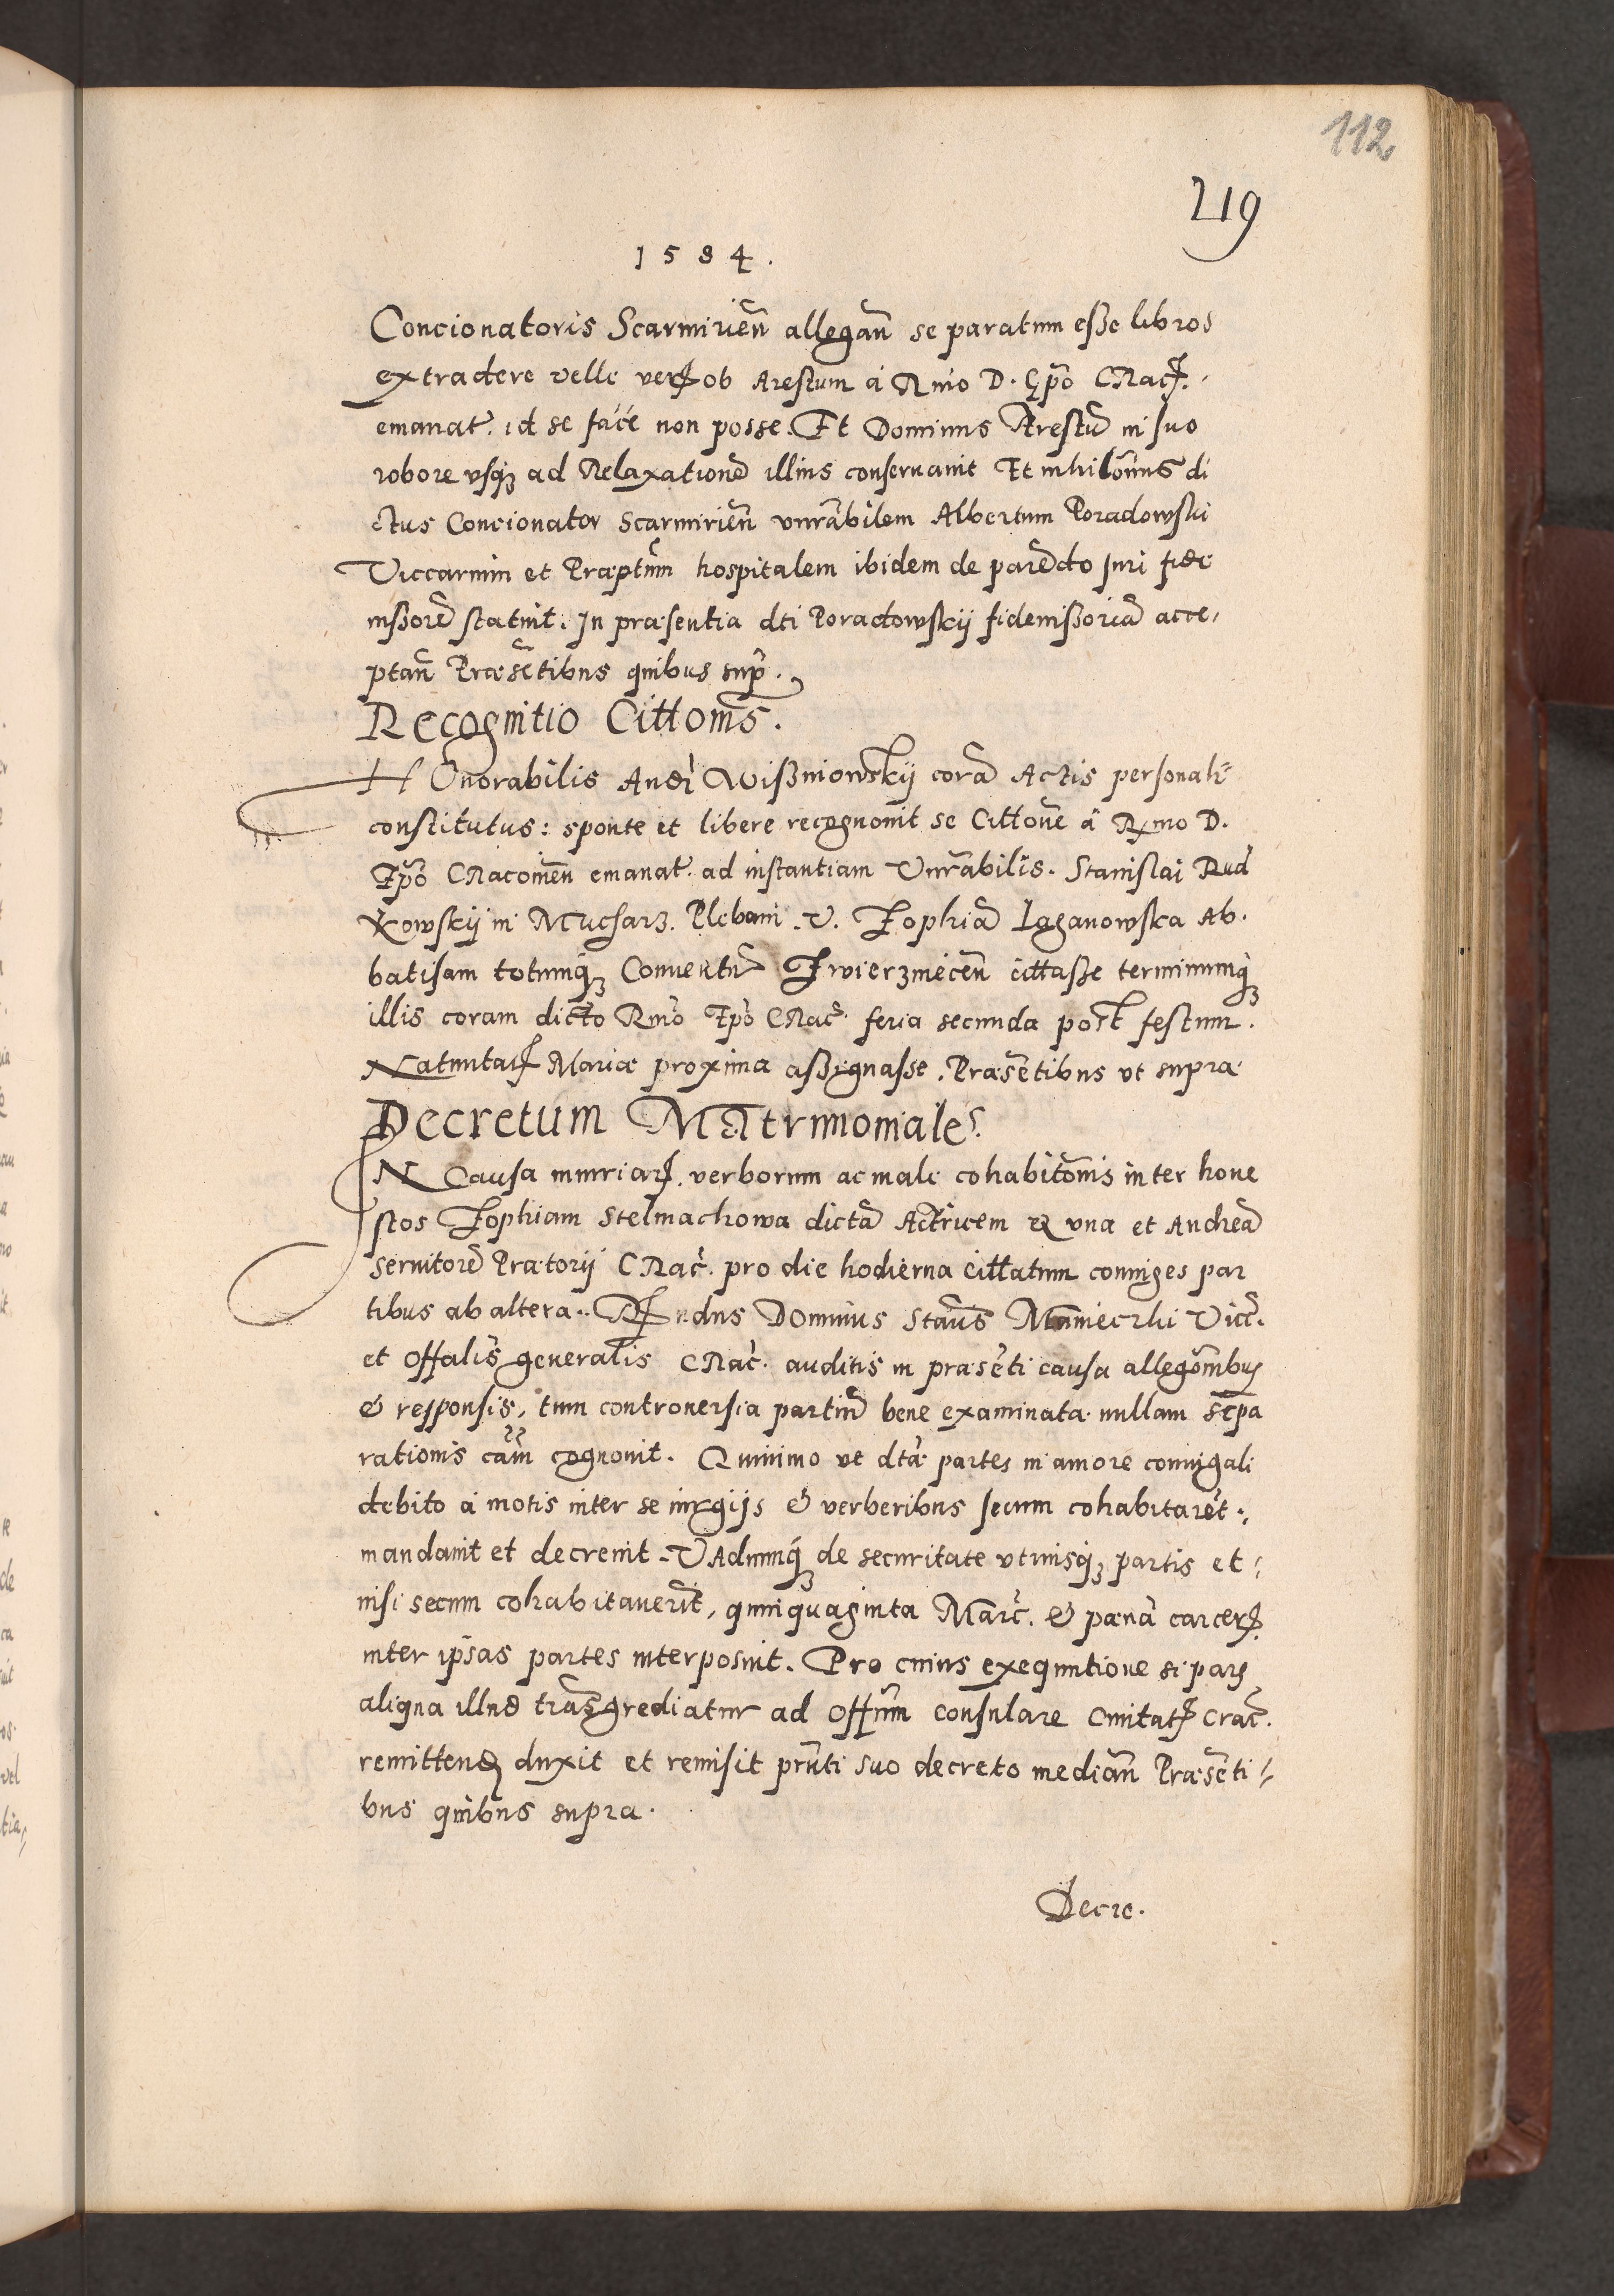 112
219
1584.
Concionatoris Scarmirien̄ allegan̄ se paratum esse libros
extradere velle ver ob Arestum a Rmo D. Epo CRac.
emanat. id se face non posse. Et Dominus Arestu in suo
robore vsq ad Relaxatione illius conseruauit Et nihilomis di
ctus Concionator Scarmirien̄ vnrabilem Albertum Poradowski
Viccarium et Praeptum hospitalem ibidem de paredo Juri fide
iussore statuit. In praesentia dti Poradowskij fideiussoria acce,
ptan̄ Praesetibus quibus sup.
Recognitio Cittonis.
HOnorabilis Andr Wiszniowskij cora Actis personalr
constitutus: sponte et libere recognouit se Cittone a Rmo D.
Epo CRacouien̄ emanat. ad instantiam Vnrabilis. Stanislai Rud
kowskij in Mucharz. Plebani. V. Zophia Laganowska Ab.
batisam totumq Conuentu Zwierzmecen̄ cittasse terminumq
illis coram dicto Rmo Epo CRac. feria secunda post festum.
Natiuitat Mariae proxima assignasse. Praesetibus vt supra
Decretum MAtrimoniale.
IN Causa iniuriar. verborum ac male cohabitonis inter hone
stos Zophiam Stelmachowa dicta Actricem ex vna et Andrea
seruitore Pratorij CRac. pro die hodierna cittatum coniuges par
tibus ab altera. Rndus DOminus Staus Manieczki Vic.
et Offalis generalis CRac. auditis in praeseti causa allegonibus
& responsis, tum controuersia partiu bene examinata nullam sepa
rationis cam cognouit. Quinimo vt dtae partes in amore coniugali
debito a motis inter se iurgijs & verberibus secum cohabitaret.
mandauit et decreuit. VAdiumq de securitate vtriusq partis et
nisi secum cohabitauerit, quinquaginta Marc. & paena carcer.
inter ipsas partes interposuit. Pro cuius exequutione si pars
aliqua illud trasgrediatur ad Offium consulare Ciuitat Crac.
remittend duxit et remisit prnti suo decreto median̄ Praeseti
bus quibus supra.
Decre.